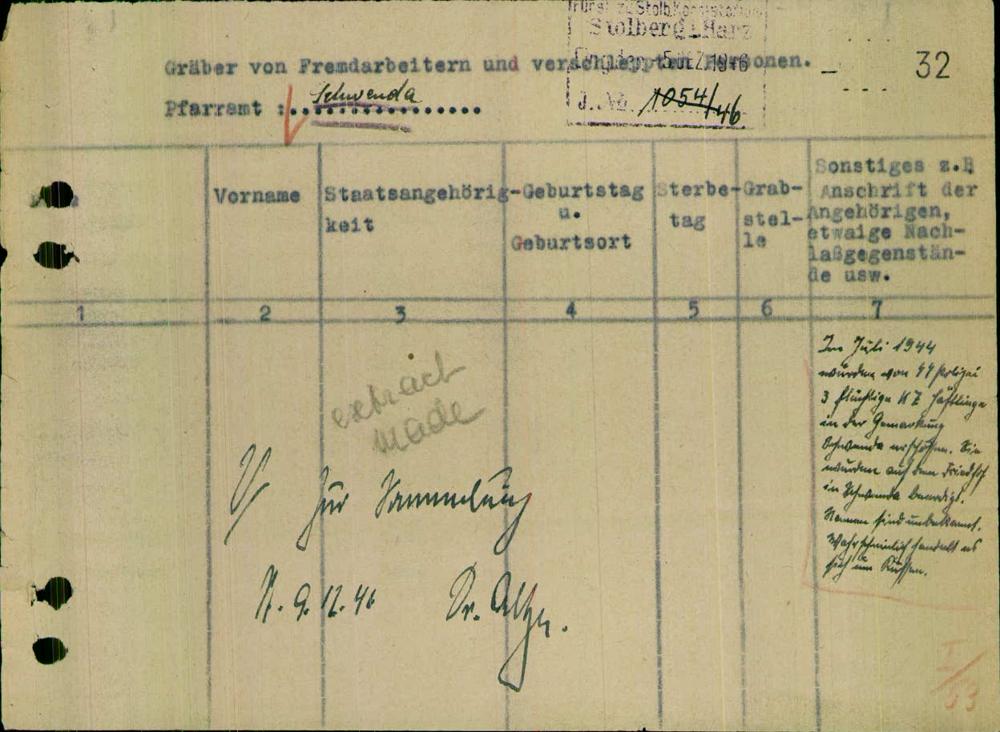 Fürstl. Stolb. Konsistorium
Stolberg-Harz
Eing. den -5. DEZ. 1946
J. Nr. 1054/46
32
Gräber von Fremdarbeitern und verschleppten Personen.
Pfarramt : Schwenda
Vorname
Staatsangehörig-
keit
Geburtstag
u.
Geburtsort
Sterbe-
tag
Grab-
stel-
le
Sonstiges z.B
Anschrift der
Angehörigen,
etwaige Nach-
laßgegenstän-
de usw.
1 2 3 4 5 6 7
Im Juli 1944
wurden von SS Polizei
3 flüchtige KZ Häftlinge
in der Gemarkung
Schwenda erschossen. Sie
wurden auf dem Friedhof
in Schwenda beerdigt.
Namen sind unbekannt.
Wahrscheinlich handelt es
sich um Russen.
extract
made
V/ zur Sammlung
St. 9.12.46
Dr.
I/53